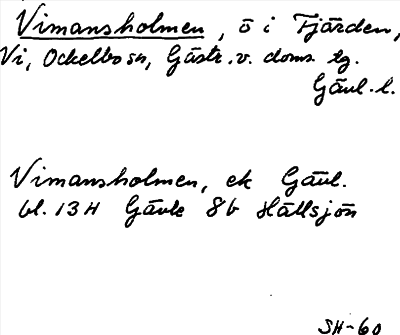 Vimansholmen, ö i Fjärden,
Vi, Ockelbo sn, Gästr. v. doms. tg.
Gävl. l.
Vimansholmen, ek Gävl.
bl. 13H Gävle 8b Hällsjön
SH-60